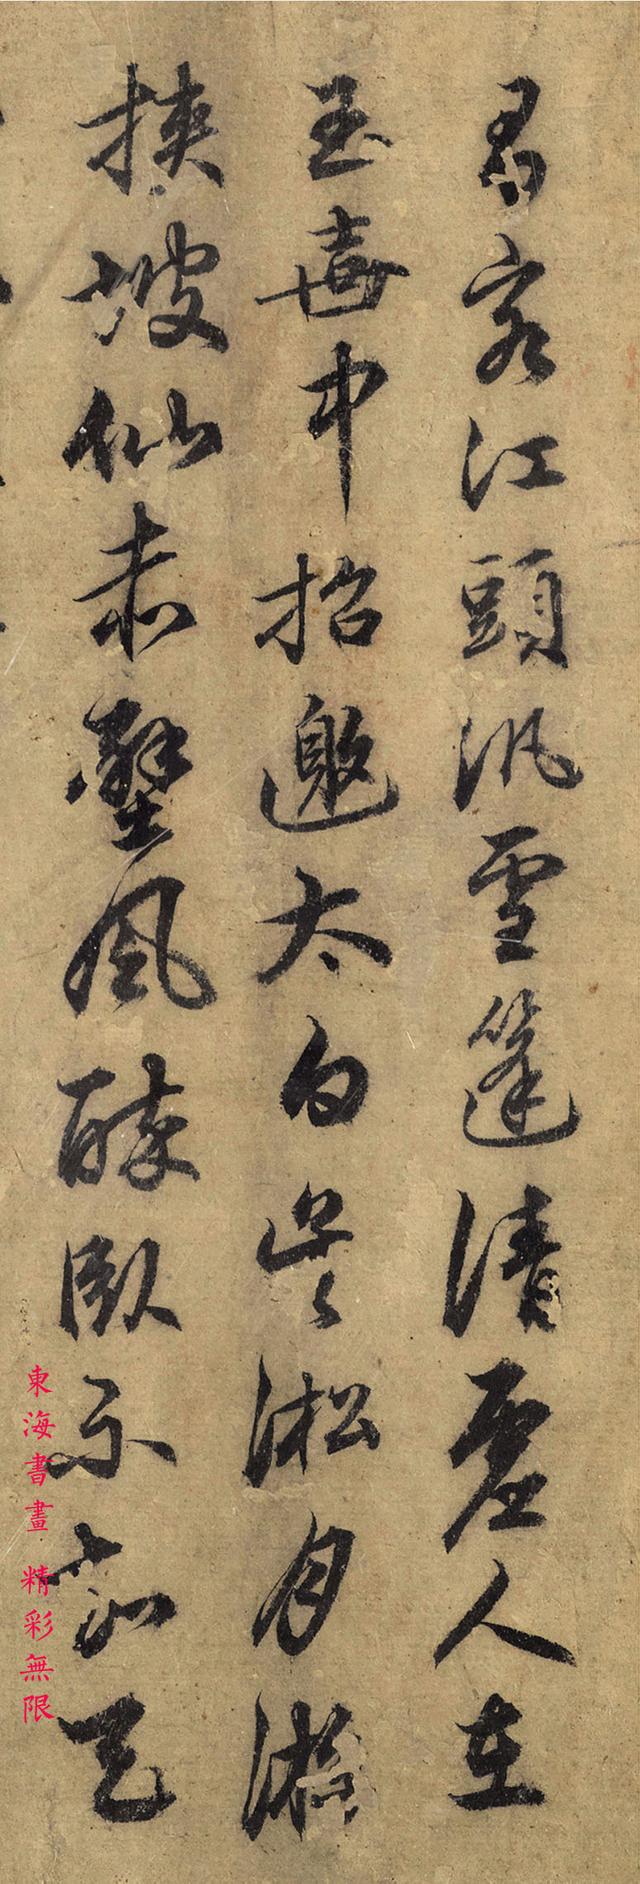 君家江頭汎雪篷清虛人在
玉壺中招邀太白吳淞月游
挾坡仙赤壁風醉臥不知天
東海書畫 精彩無限